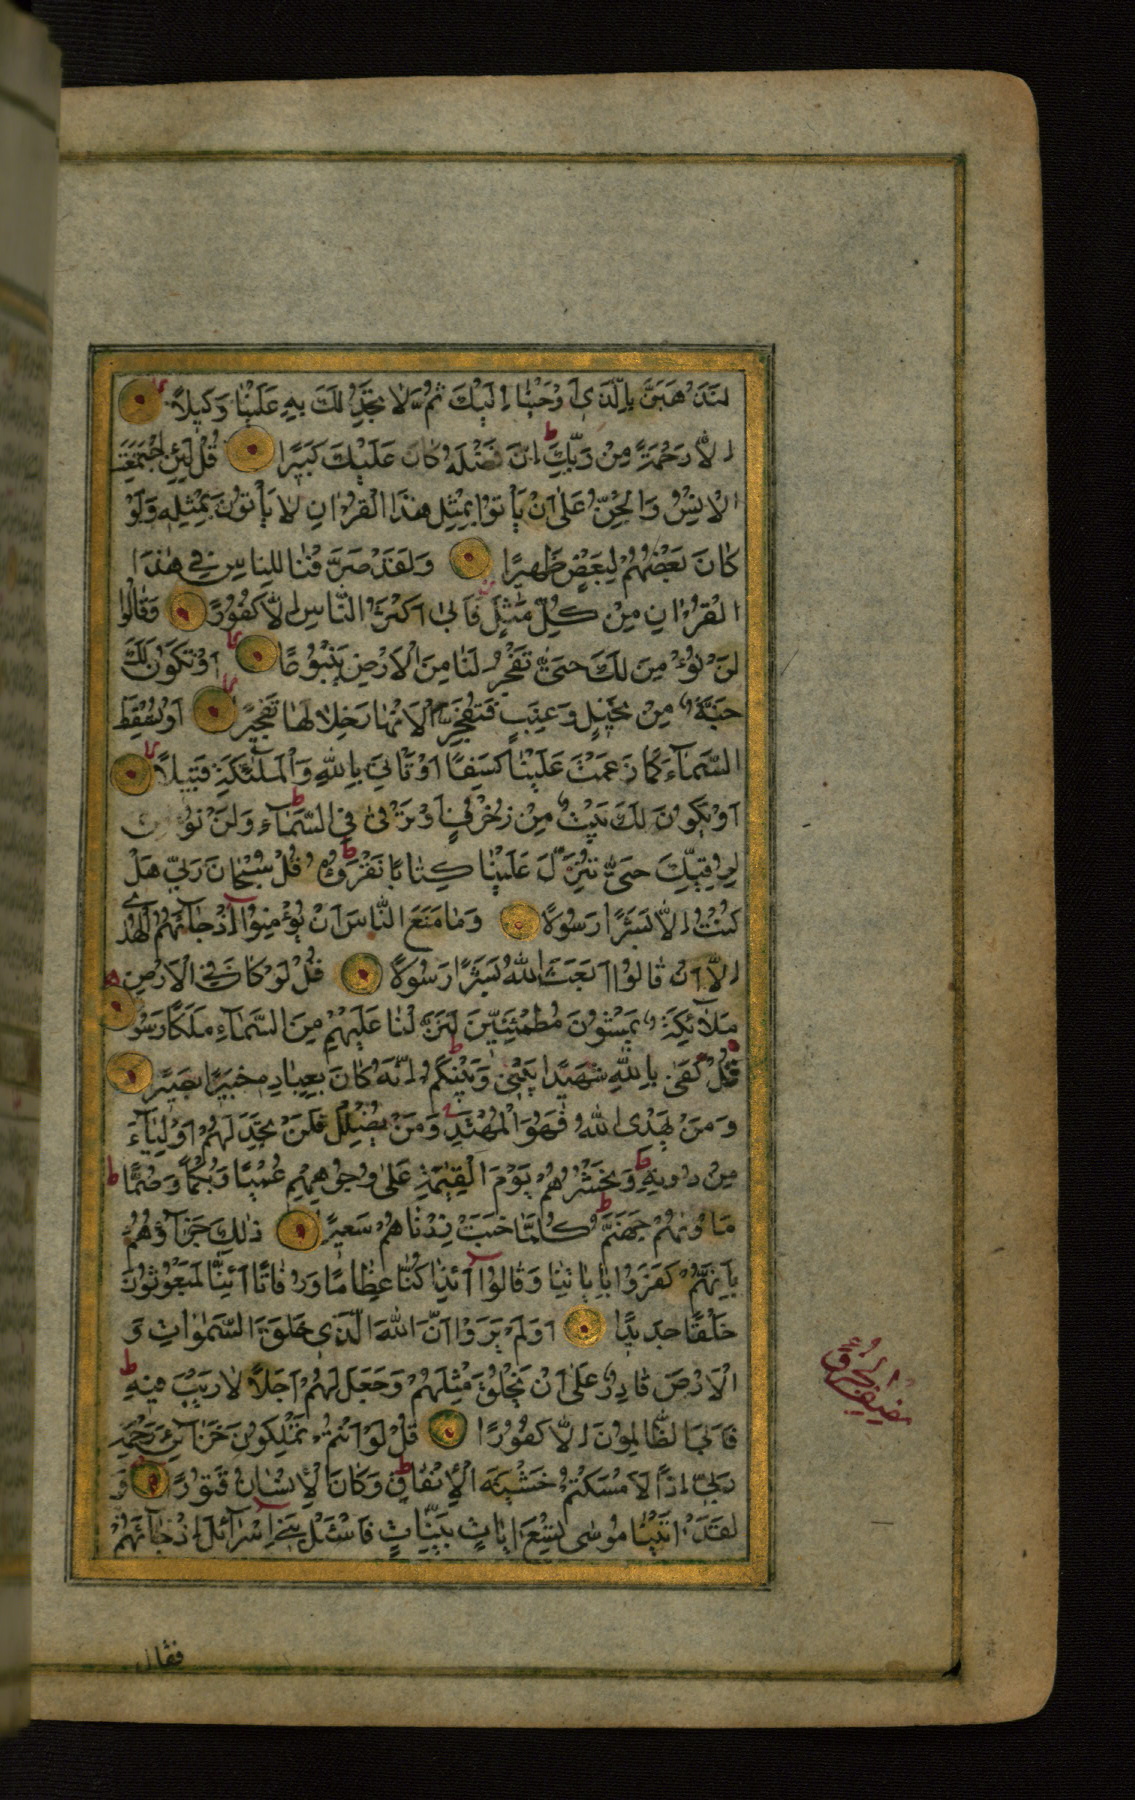 لَنَذْهَبَنَّ بِالَّذِي أَوْحَيْنَا إِلَيْكَ ثُمَّ لَا تَجِدُ لَكَ بِهِ عَلَيْنَا وَكِيلًا
إِلَّا رَحْمَةً مِنْ رَبِّكَ إِنَّ فَضْلَهُ كَانَ عَلَيْكَ كَبِيرًا قُلْ لَئِنِ اجْتَمَعَتِ
الْإِنْسُ وَالْجِنُّ عَلَى أَنْ يَأْتُوا بِمِثْلِ هَذَا الْقُرْآنِ لَا يَأْتُونَ بِمِثْلِهِ وَلَوْ
كَانَ بَعْضُهُمْ لِبَعْضٍ ظَهِيرًا وَلَقَدْ صَرَّفْنَا لِلنَّاسِ فِي هَذَا
الْقُرْآنِ مِنْ كُلِّ مَثَلٍ فَأَبَى أَكْثَرُ النَّاسِ إِلَّا كُفُورًا وَقَالُوا
لَنْ نُؤْمِنَ لَكَ حَتَّى تَفْجُرَ لَنَا مِنَ الْأَرْضِ يَنْبُوعًا أَوْ تَكُونَ لَكَ
جَنَّةٌ مِنْ نَخِيلٍ وَعِنَبٍ فَتُفَجِّرَ الْأَنْهَارَ خِلَالَهَا تَفْجِيرًا أَوْ تُسْقِطَ
السَّمَاءَ كَمَا زَعَمْتَ عَلَيْنَا كِسَفًا أَوْ تَأْتِيَ بِاللَّهِ وَالْمَلَائِكَةِ قَبِيلًا
أَوْ يَكُونَ لَكَ بَيْتٌ مِنْ زُخْرُفٍ أَوْ تَرْقَى فِي السَّمَاءِ وَلَنْ نُؤْمِنَ
لِرُقِيِّكَ حَتَّى تُنَزِّلَ عَلَيْنَا كِتَابًا نَقْرَؤُهُ قُلْ سُبْحَانَ رَبِّي هَلْ
كُنْتُ إِلَّا بَشَرًا رَسُولًا وَمَا مَنَعَ النَّاسَ أَنْ يُؤْمِنُوا إِذْ جَاءَهُمُ الْهُدَى
إِلَّا أَنْ قَالُوا أَبَعَثَ اللَّهُ بَشَرًا رَسُولًا قُلْ لَوْ كَانَ فِي الْأَرْضِ
مَلَائِكَةٌ يَمْشُونَ مُطْمَئِنِّينَ لَنَزَّلْنَا عَلَيْهِمْ مِنَ السَّمَاءِ مَلَكًا رَسُو
قُلْ كَفَى بِاللَّهِ شَهِيدًا بَيْنِي وَبَيْنَكُمْ إِنَّهُ كَانَ بِعِبَادِهِ خَبِيرًا بَصِيرًا
وَمَنْ يَهْدِي اللَّهُ فَهُوَ الْمُهْتَدِ وَمَنْ يُضْلِلْ فَلَنْ تَجِدَ لَهُمْ أَوْلِيَاءَ
مِنْ دُونِهِ وَنَحْشُرُهُمْ يَوْمَ الْقِيَمَةِ عَلَى وُجُوهِهِمْ عُمْيًا وَبُكْمًا وَصُمًّا
مَأْوَاهُمْ جَهَنَّمُ كُلَّمَا خَبَتْ زِدْنَاهُمْ سَعِيرًا ذَلِكَ جَزَاؤُهُمْ
بِأَنَّهُمْ كَفَرُوا بِآيَاتِنَا وَقَالُوا أَئِذَا كُنَّا عِظَامًا وَرُفَاتًا أَئِنَّا لَمَبْعُوثُونَ
خَلْقًا جَدِيدًا أَوَلَمْ يَرَوْا أَنَّ اللَّهَ الَّذِي خَلَقَ السَّمَوَاتِ وَ
الْأَرْضَ قَادِرٌ عَلَى أَنْ يَخْلُقَ مِثْلَهُمْ وَجَعَلَ لَهُمْ أَجَلًا لَا رَيْبَ فِيهِ
فَأَبَى الظَّالِمُونَ إِلَّا كُفُورًا قُلْ لَوْ أَنْتُمْ تَمْلِكُونَ خَزَائِنَ رَحْمَةِ
رَبِّي إِذًا لَأَمْسَكْتُمْ خَشْيَةَ الْإِنْفَاقِ وَكَانَ الْإِنْسَانُ قَتُورًا وَ
لَقَدْ آتَيْنَا مُوسَى تِسْعَ آيَاتٍ بَيِّنَاتٍ فَاسْأَلْ بَنِي إِسْرَائِيلَ إِذْ جَاءَهُمْ
فقال